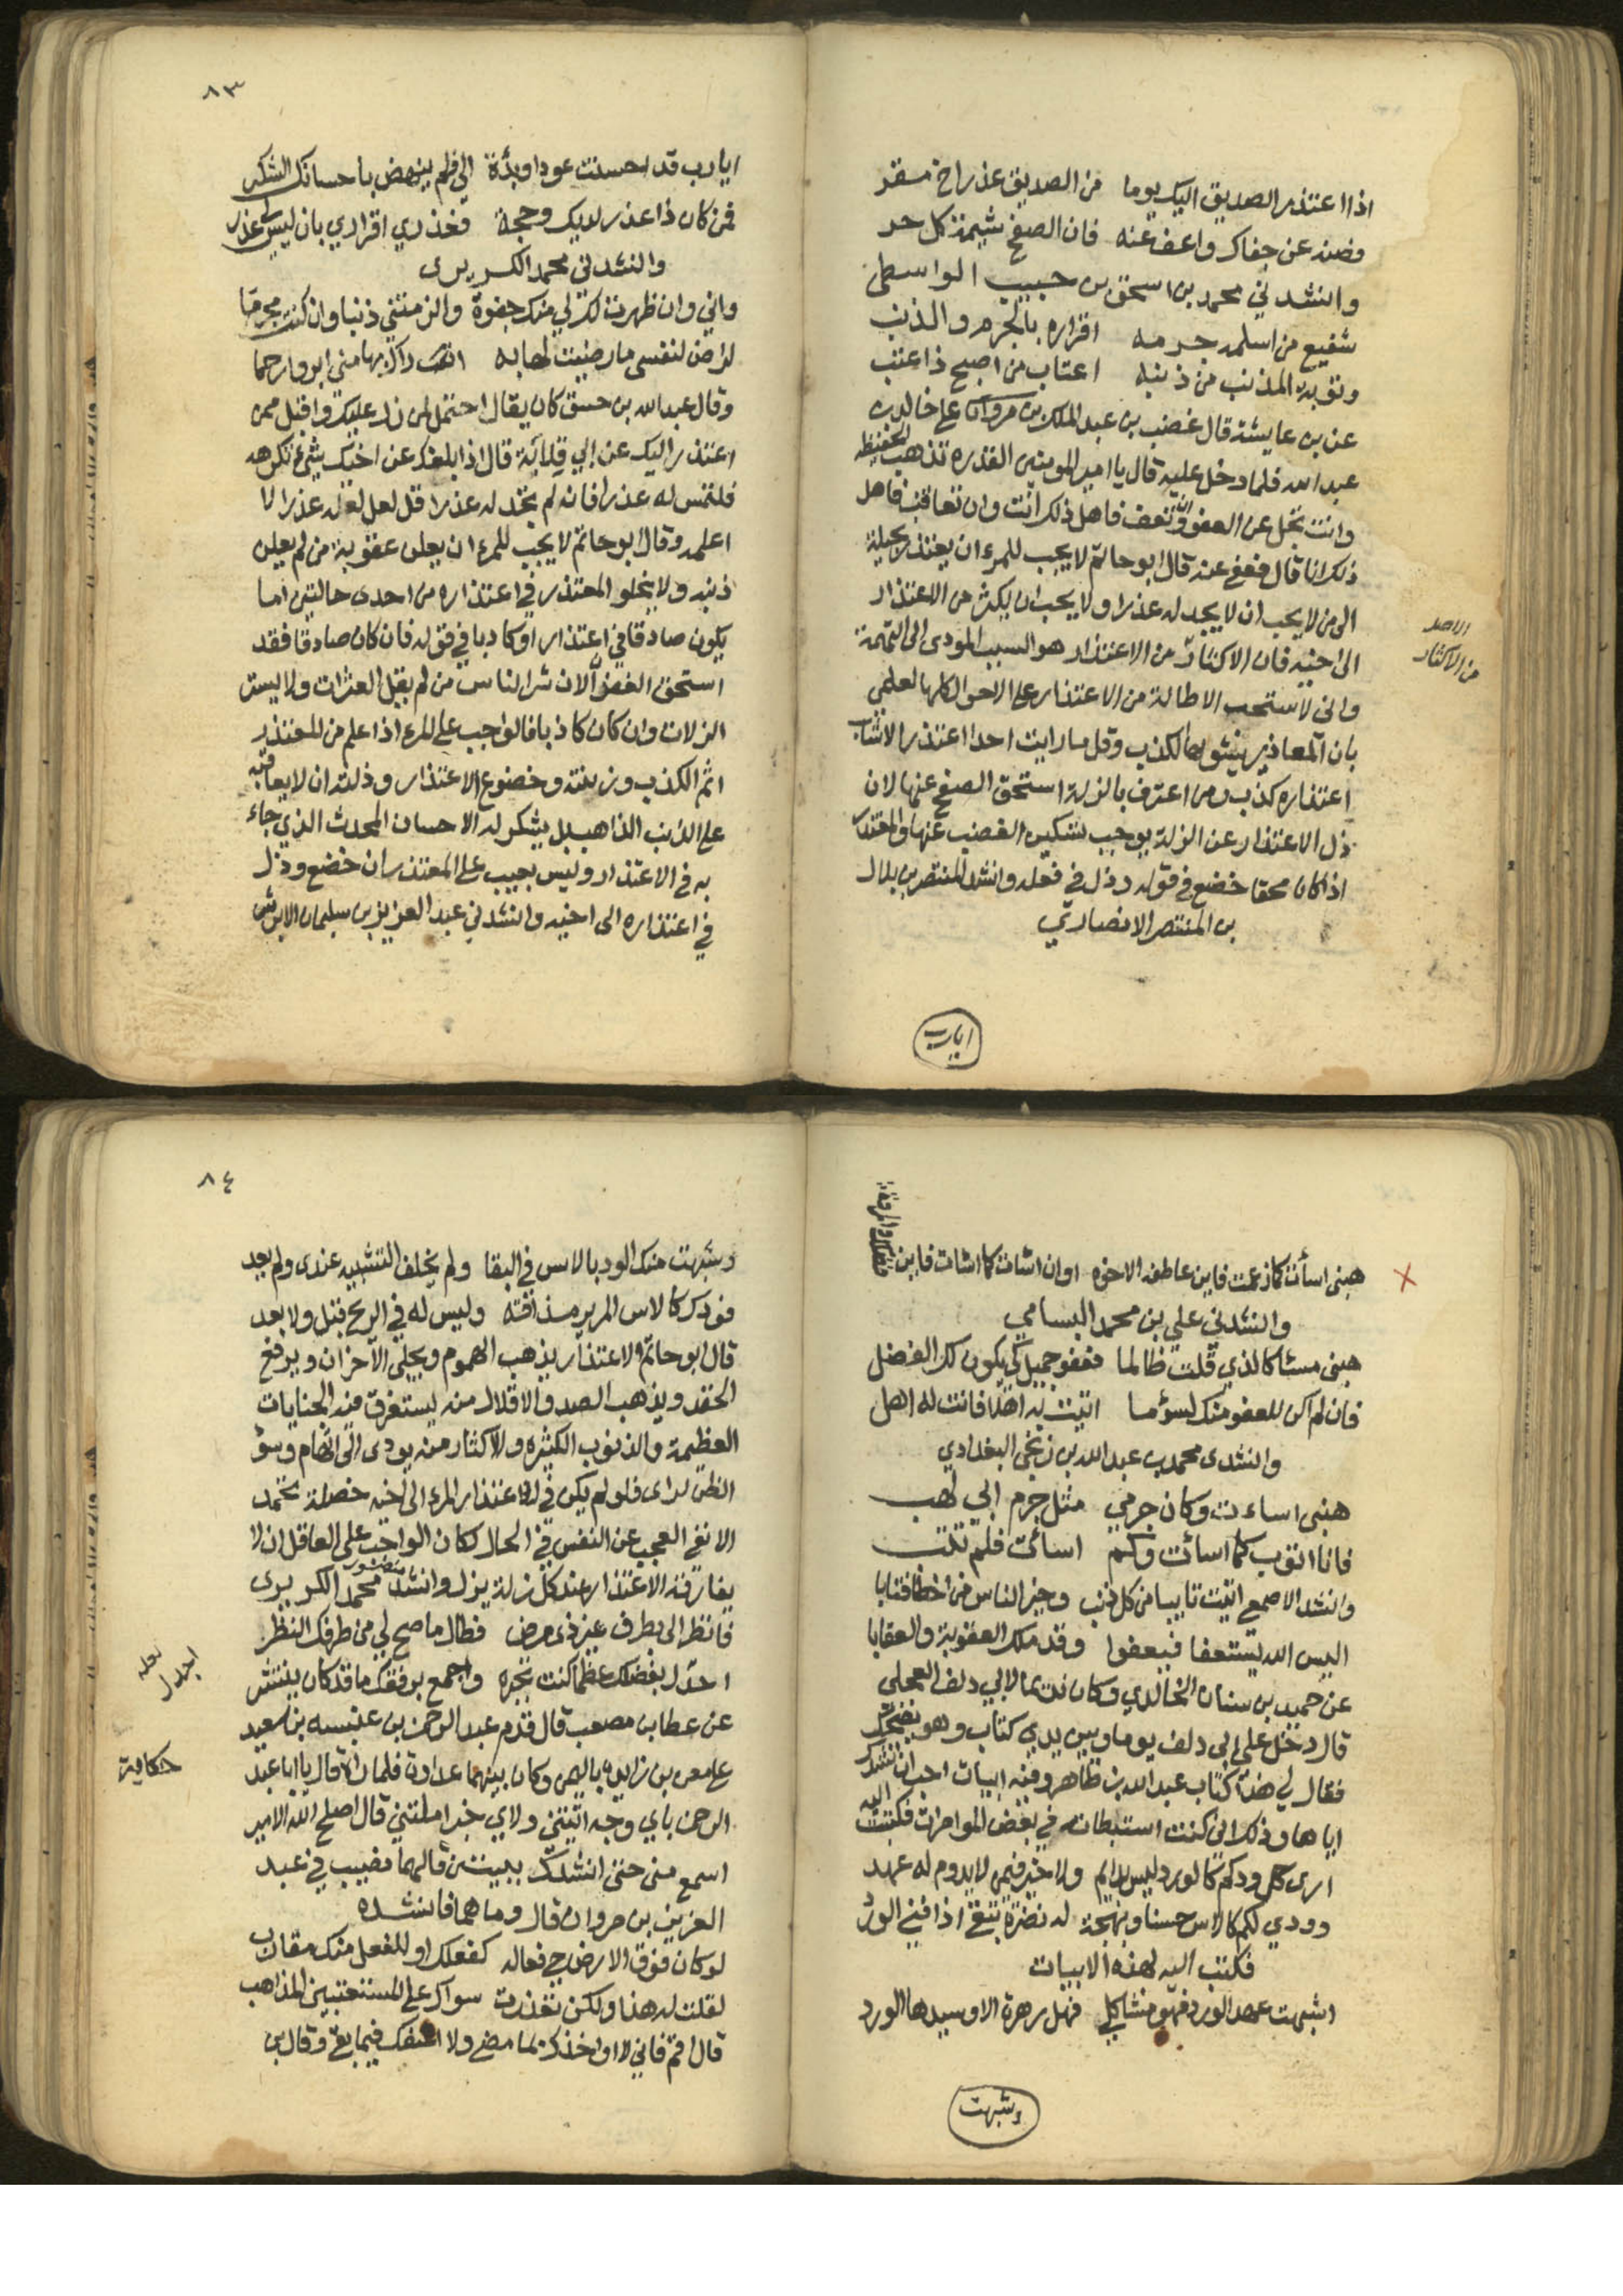 اذا اعتذر الصديق اليك يوما من الصديق عذر اخ مقر
فصنه عن جفاك واعف عنه فان الصفح شيمة كل حر
وانشدني محمد بن اسحق بن حبيب الواسطي
شفيع من اسلمه جرمه اقراره بالجرم والذنب
وتوبة المذنب من ذنبه اعتاب من اصبح ذا عتب
عن بن عايشة قال غضب بن عبد الملك بن مروان على خالد بن
عبد الله فلما دخل عليه قال يا امير المومنين القدره تذهب الحفيظه
وانت تجل عن العقوبة فان تعف فاهل ذلك انت وان تعاقب فاهل
ذلك انا قال فعفى عنه قال ابو حاتم لا يجب للمرء ان يعتذر بحيلة
الى من لا يحب ان لا يجد له عذرا ولا يجب ان يكثر من الاعتذار
الى اخيه فان الاكثار من الاعتذار هو السبب المودى الى التهمة
واني لاستحب الاطالة من الاعتذار على الاحوال كلها لعلمي
بان المعاذير ينشوبها الكذب وقل ما رايت احدا اعتذر الا شاب
اعتذاره كذب ومن اعترف بالزلة استحق الصفح عنها لان
ذل الاعتذار عن الزلة يوجب تسكين الغضب عنها والمعتذر
اذا كان محقا خضع في قوله وذل في فعله وانشد المنتصر بن بلال
بن المنتصر الانصاري
من الاكثار
ايارب
٨٣
ايارب قد احسنت عودا وبدأة الي فلم ينهض باحسانك الشكر
فمن كان ذا عذر لديك وحجة فعذري اقراري بان ليس لي عذر
وانشدني محمد الكريرى
واني وان ظهرت لك لي منك جفوة والزمتني ذنبا وان كنت مجرما
لراض لنفسي ما رضيت لها به اراك بها مني ابر وارحما
وقال عبد الله بن حسن كان يقال احتمل لمن زل عليك واقبل ممن
اعتذر اليك عن ابي قلابة قال اذا بلغك عن اخيك شي تكرهه
فلتمس له عذرا فانه لم تجد له عذرا قل لعل له عذرا لا
اعلمه وقال ابو حاتم لا يجب للمرء ان يعلن عقوبة من لم يعلن
ذنبه ولا يخلو المعتذر في اعتذاره من احدى حالتين اما
يكون صادقا في اعتذاره او كاذبا في قوله فان كان صادقا فقد
استحق العفو الا ان شر الناس من لم يقل العثرات ولا يستر
الزلات وان كان كاذبا فالواجب على المرء اذا علم من المعتذر
اثم الكذب وزينته وخضوع الاعتذار وذلته ان لا يعاقبه
على الذنب الذاهب بل يشكر له الاحسان المحدث الذي جاء
به في الاعتذار وليس بعيب على المعتذر ان خضع وذل
في اعتذاره الى اخيه وانشدني عبد العزيز بن سليمان الابرش
هبنى اسأت كما زعمت فاين عاطفه الاخوه اوان اسات كما اسات فاين
وانشدني علي بن محمد البسامي
هبنى مسئا كالذي قلت ظالما فعفو جميل كي يكون لك الفضل
فان لم اكن للعفو منك لسؤما اتيت به اهلا فانت له اهل
وانشدى محمد بن عبد الله بن زنجى البغدادي
هبنى اساءت وكان جرمي مثل جرم ابي لهب
فانا اتوب كما اسأت وكم اسأت فلم تتب
وانشد الاصمعي اتيت تايبا من كل ذنب وخير الناس من اخطا فتابا
اليس الله يستعفا فيعفوا وقد ملك العقوبة والعقابا
عن حميد بن سنان الخالدي وكان نديما لابي دلف العجلي
قال دخل على ابى دلف يوما وبين يدي كتاب وهو يضحك
فقال لي هذا كتاب عبد الله بن طاهر وفيه ابيات احب ان انشدك
اياها وذلك اني كنت استبطاته في بعض المواءمرات فكتبت اليه
ارى كل ودكم كالورد ليس بدايم ولا خير فيمن لا يدوم له عهد
وودي لكم كالاس حسنا وبهجة له نضرة تبقى اذا فني الورد
فكتب اليه بهذه الابيات
اشبهت عهد الورد فهو مشاكل فهل زهرة الا وسيدها الورد
وشبهت
٨٤
وشبهت منك الود بالاس في البقا ولم يخلف التشبيه عندى ولم يعد
فودك كالاس المرير مذاقته وليس له في الريح قبل ولا بعد
قال ابو حاتم والاعتذار يذهب الهموم ويجلي الاحزان ويرفع
الحقد ويذهب الصد والاقلال منه ليستغرق فيه الجنايات
العظيمة والذنوب الكثيره والاكثار منه يودى الى اتهام وسؤ
الظن لراى فلو لم يكن في اعتذار المرء الى اخيه خصلة تحمد
الا نفي العجب عن النفس في الحال لكان الواجب على العاقل ان لا
يفارقه الاعتذار عند كل زلة يزل وانشد منصور محمد الكريرى
فانظر الى بطرف غير ذي مرض فطال ما صح لي من طرفك النظر
بفضلك عظما كنت تجبره واجمع برفقك ما قد كان ينتشر
عن عطا بن مصعب قال قدم عبد الرحمن بن عنبسه بن سعيد
على معن بن زايدة باليمن وكان بينهما عداوة فلما راه قال يا ابا عبد
الرحمن باي وجه اتيتني ولاي خير املتني قال اصلح الله الامير
اسمع مني حتى انشدك ببيتين قالهما نصيب في عبد
العزيز بن مروان قال وما هما فانشده
لو كان فوق الارض حي فعاله كفعلك او للفعل منك مقارب
لقلت له هذا ولكن تعذرت سواك على المستعتبين المذاهب
قال اقم فاني لا اواخذك لما مضى ولا اعنفك فيما بقي وقال بن
لعله
حكاية